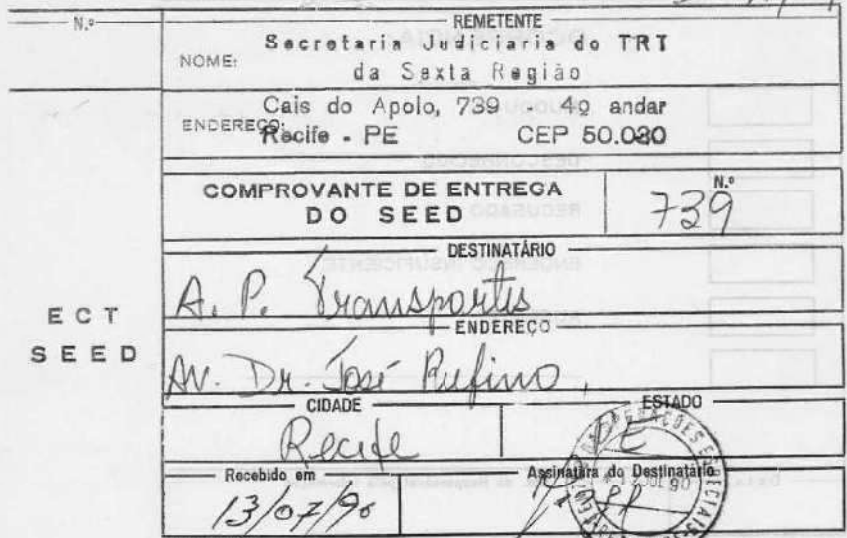 N.º
REMETENTE
NOME: Secretaria Judiciaria do TRT
da Sexta Região
ENDEREÇO: Cais do Apolo, 739 4º andar
Recife - PE CEP 50.030
COMPROVANTE DE ENTREGA
DO SEED
N.º
739
DESTINATÁRIO
A. P. Transportes
ECT
SEED
ENDEREÇO
Av. Dr. José Rufino,
CIDADE
Recife
ESTADO
PE
Recebido em
13/07/90
Assinatura do Destinatário